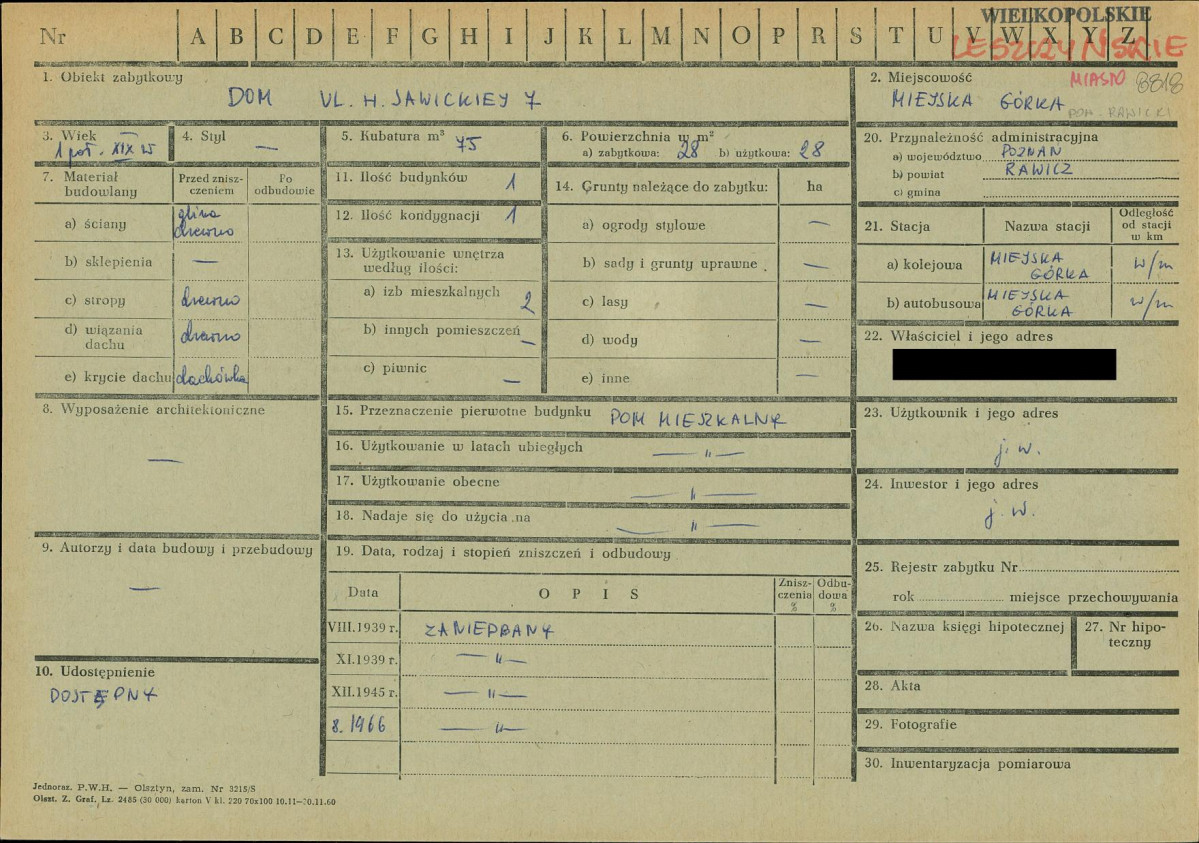 WIELKOPOLSKIE
Nr A B C D E F G H I J K L M N O P R S T U V W X Y Z
LESZCZYŃSKIE
1. Obiekt zabytkowy
DOM UL. H. SAWICKIEJ 7
2. Miejscowość
MIASTO 8818
MIEJSKA GÓRKA
POW. RAWICKI
3. Wiek
1 poł. XIX w
4. Styl
—
5. Kubatura m³ 75
6. Powierzchnia w m²
a) zabytkowa: 28 b) użytkowa: 28
20. Przynależność administracyjna
a) województwo POZNAŃ
b) powiat RAWICZ
c) gmina
7. Materiał budowlany
Przed zniszczeniem
Po odbudowie
a) ściany glina drewno
b) sklepienia —
c) stropy drewno
d) wiązania dachu drewno
e) krycie dachu dachówka
11. Ilość budynków 1
12. Ilość kondygnacji 1
13. Użytkowanie wnętrza według ilości:
a) izb mieszkalnych 2
b) innych pomieszczeń —
c) piwnic —
14. Grunty należące do zabytku: ha
a) ogrody stylowe —
b) sady i grunty uprawne —
c) lasy —
d) wody —
e) inne —
21. Stacja
Nazwa stacji
Odległość od stacji w km
a) kolejowa MIEJSKA GÓRKA w/m
b) autobusowa MIEJSKA GÓRKA w/m
22. Właściciel i jego adres
8. Wyposażenie architektoniczne
—
15. Przeznaczenie pierwotne budynku DOM MIESZKALNY
16. Użytkowanie w latach ubiegłych — " —
17. Użytkowanie obecne — " —
18. Nadaje się do użycia na — " —
23. Użytkownik i jego adres
j. w.
24. Inwestor i jego adres
j. w.
9. Autorzy i data budowy i przebudowy
—
19. Data, rodzaj i stopień zniszczeń i odbudowy
Data OPIS Zniszczenia % Odbudowa %
VIII.1939 r. ZANIEDBANY
XI.1939 r. — " —
XII.1945 r. — " —
8.1966 — " —
25. Rejestr zabytku Nr
rok miejsce przechowywania
26. Nazwa księgi hipotecznej
27. Nr hipoteczny
10. Udostępnienie
DOSTĘPNY
28. Akta
29. Fotografie
30. Inwentaryzacja pomiarowa
Jednoraz. P.W.H. — Olsztyn, zam. Nr 3215/S
Olszt. Z. Graf. Lz. 2485 (30 000) karton V kl. 220 70x100 10.11—30.11.60